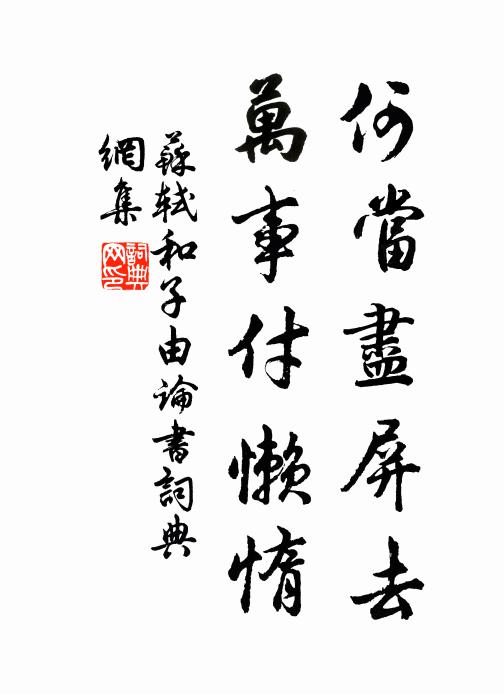 何當盡屏去
萬事付懶惰
蘇軾和子由論書詞典
網集
詞典
网印